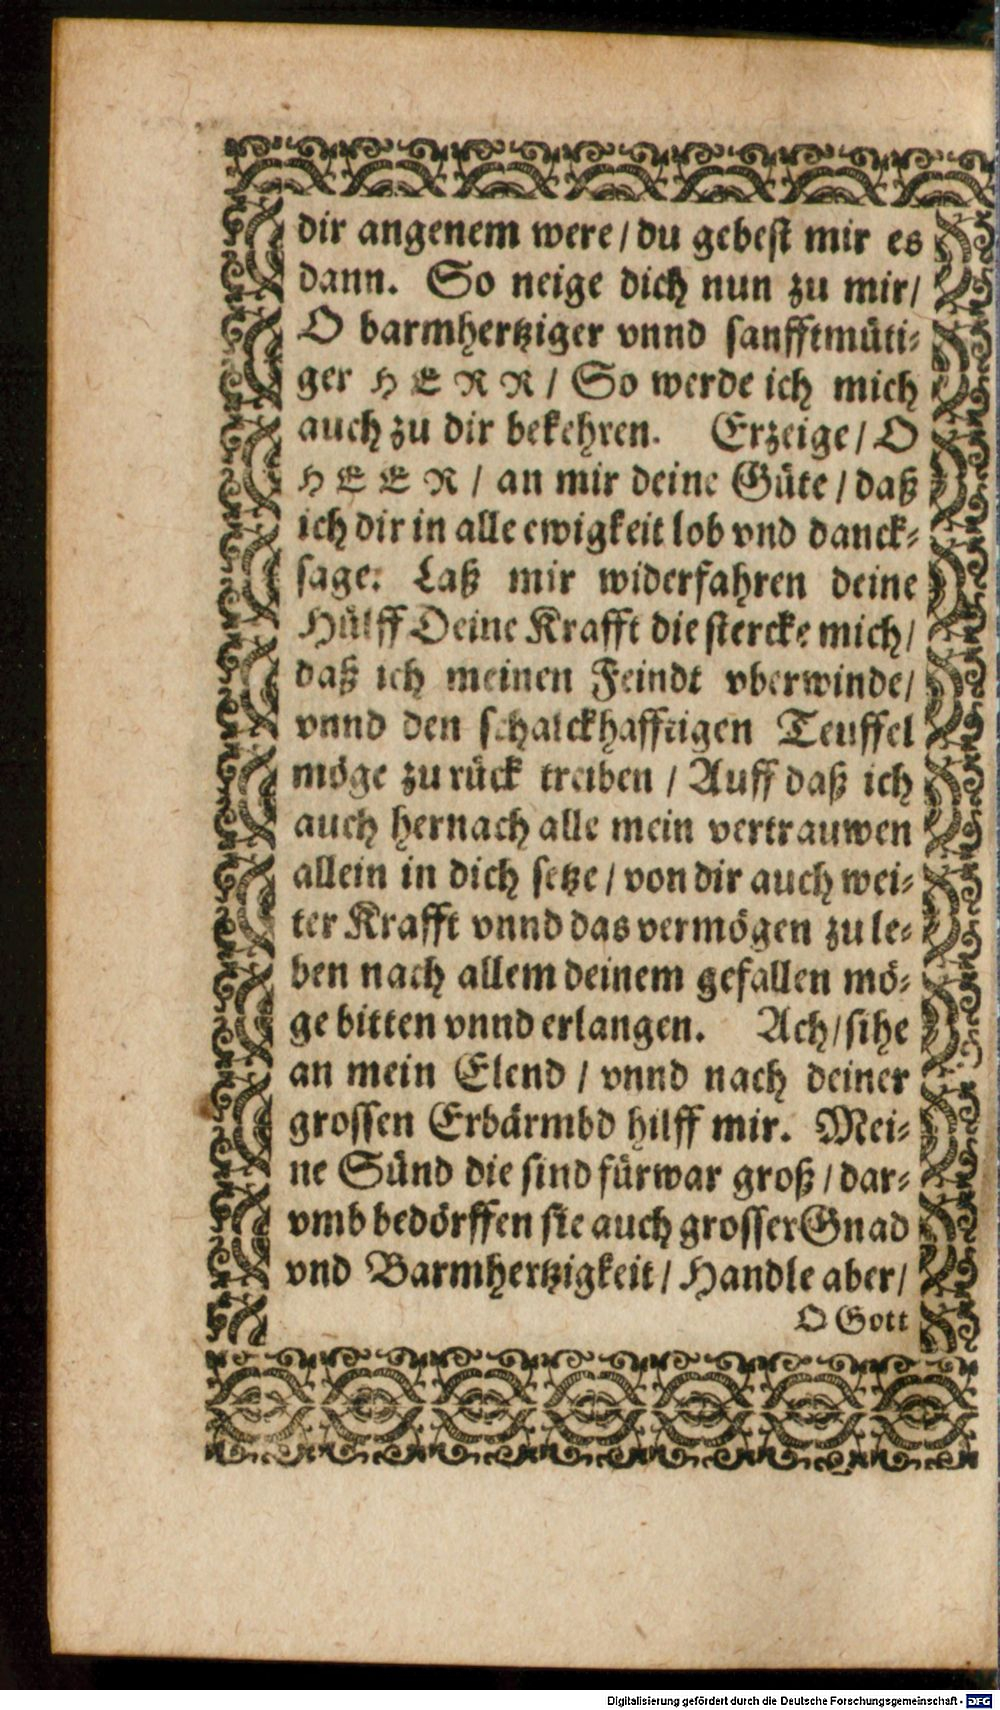 dir angenem were / du gebest mir es
dann. So neige dich nun zu mir /
O barmhertziger vnnd sanfftmüti-
ger HERR / So werde ich mich
auch zu dir bekehren. Erzeige / O
HEER / an mir deine Güte / daß
ich dir in alle ewigkeit lob vnd danck-
sage: Laß mir widerfahren deine
Hülff Deine Krafft die stercke mich /
daß ich meinen Feindt vberwinde /
vnnd den schalckhafftigen Teuffel
möge zu rück treiben / Auff daß ich
auch hernach alle mein vertrauwen
allein in dich setze / von dir auch wei-
ter Krafft vnnd das vermögen zu le-
ben nach allem deinem gefallen mö-
ge bitten vnnd erlangen. Ach / sihe
an mein Elend / vnnd nach deiner
grossen Erbärmbd hilff mir. Mei-
ne Sünd die sind fürwar groß / dar-
vmb bedörffen sie auch grosser Gnad
vnd Barmhertzigkeit / Handle aber /
O Gott
Digitalisierung gefördert durch die Deutsche Forschungsgemeinschaft - DFG